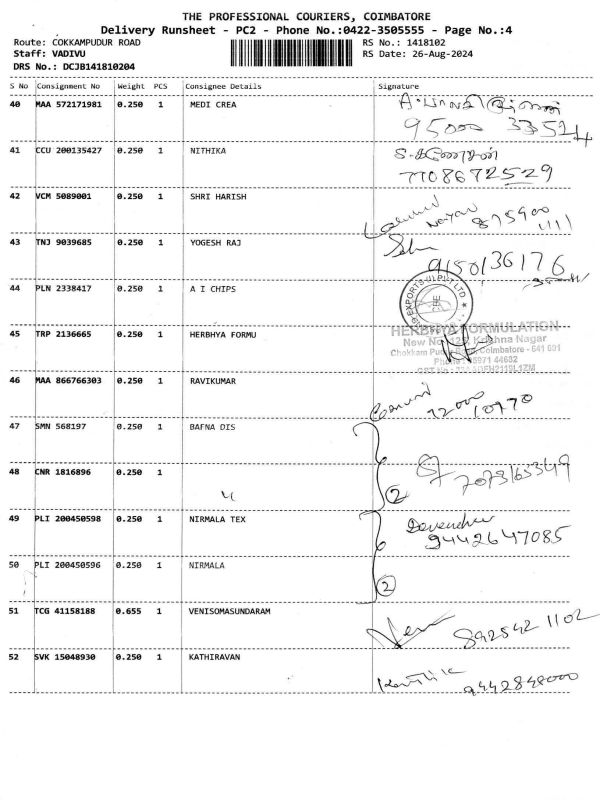 THE PROFESSIONAL COURIERS, COIMBATORE
Delivery Runsheet - PC2 - Phone No.:0422-3505555 - Page No.:4
Route: COKKAMPUDUR ROAD RS No.: 1418102
Staff: VADIVU RS Date: 26-Aug-2024
DRS No.: DCJB141810204
S No Consignment No Weight PCS Consignee Details Signature
40 MAA 572171981 0.250 1 MEDI CREA
95000 33524
41 CCU 200135427 0.250 1 NITHIKA
7708672529
42 VCM 5089001 0.250 1 SHRI HARISH
875900
1111
43 TNJ 9039685 0.250 1 YOGESH RAJ
9150136176
44 PLN 2338417 0.250 1 A I CHIPS
HERBHYA FORMULATION
45 TRP 2136665 0.250 1 HERBHYA FORMU
New No Krishna Nagar
Coimbatore - 641 601
46 MAA 866766303 0.250 1 RAVIKUMAR
72000 10770
47 SMN 568197 0.250 1 BAFNA DIS
48 CNR 1816896 0.250 1
7073165349
2
49 PLI 200450598 0.250 1 NIRMALA TEX
9442647085
50 PLI 200450596 0.250 1 NIRMALA
2
51 TCG 41158188 0.655 1 VENISOMASUNDARAM
892542 1102
52 SVK 15048930 0.250 1 KATHIRAVAN
9442848000